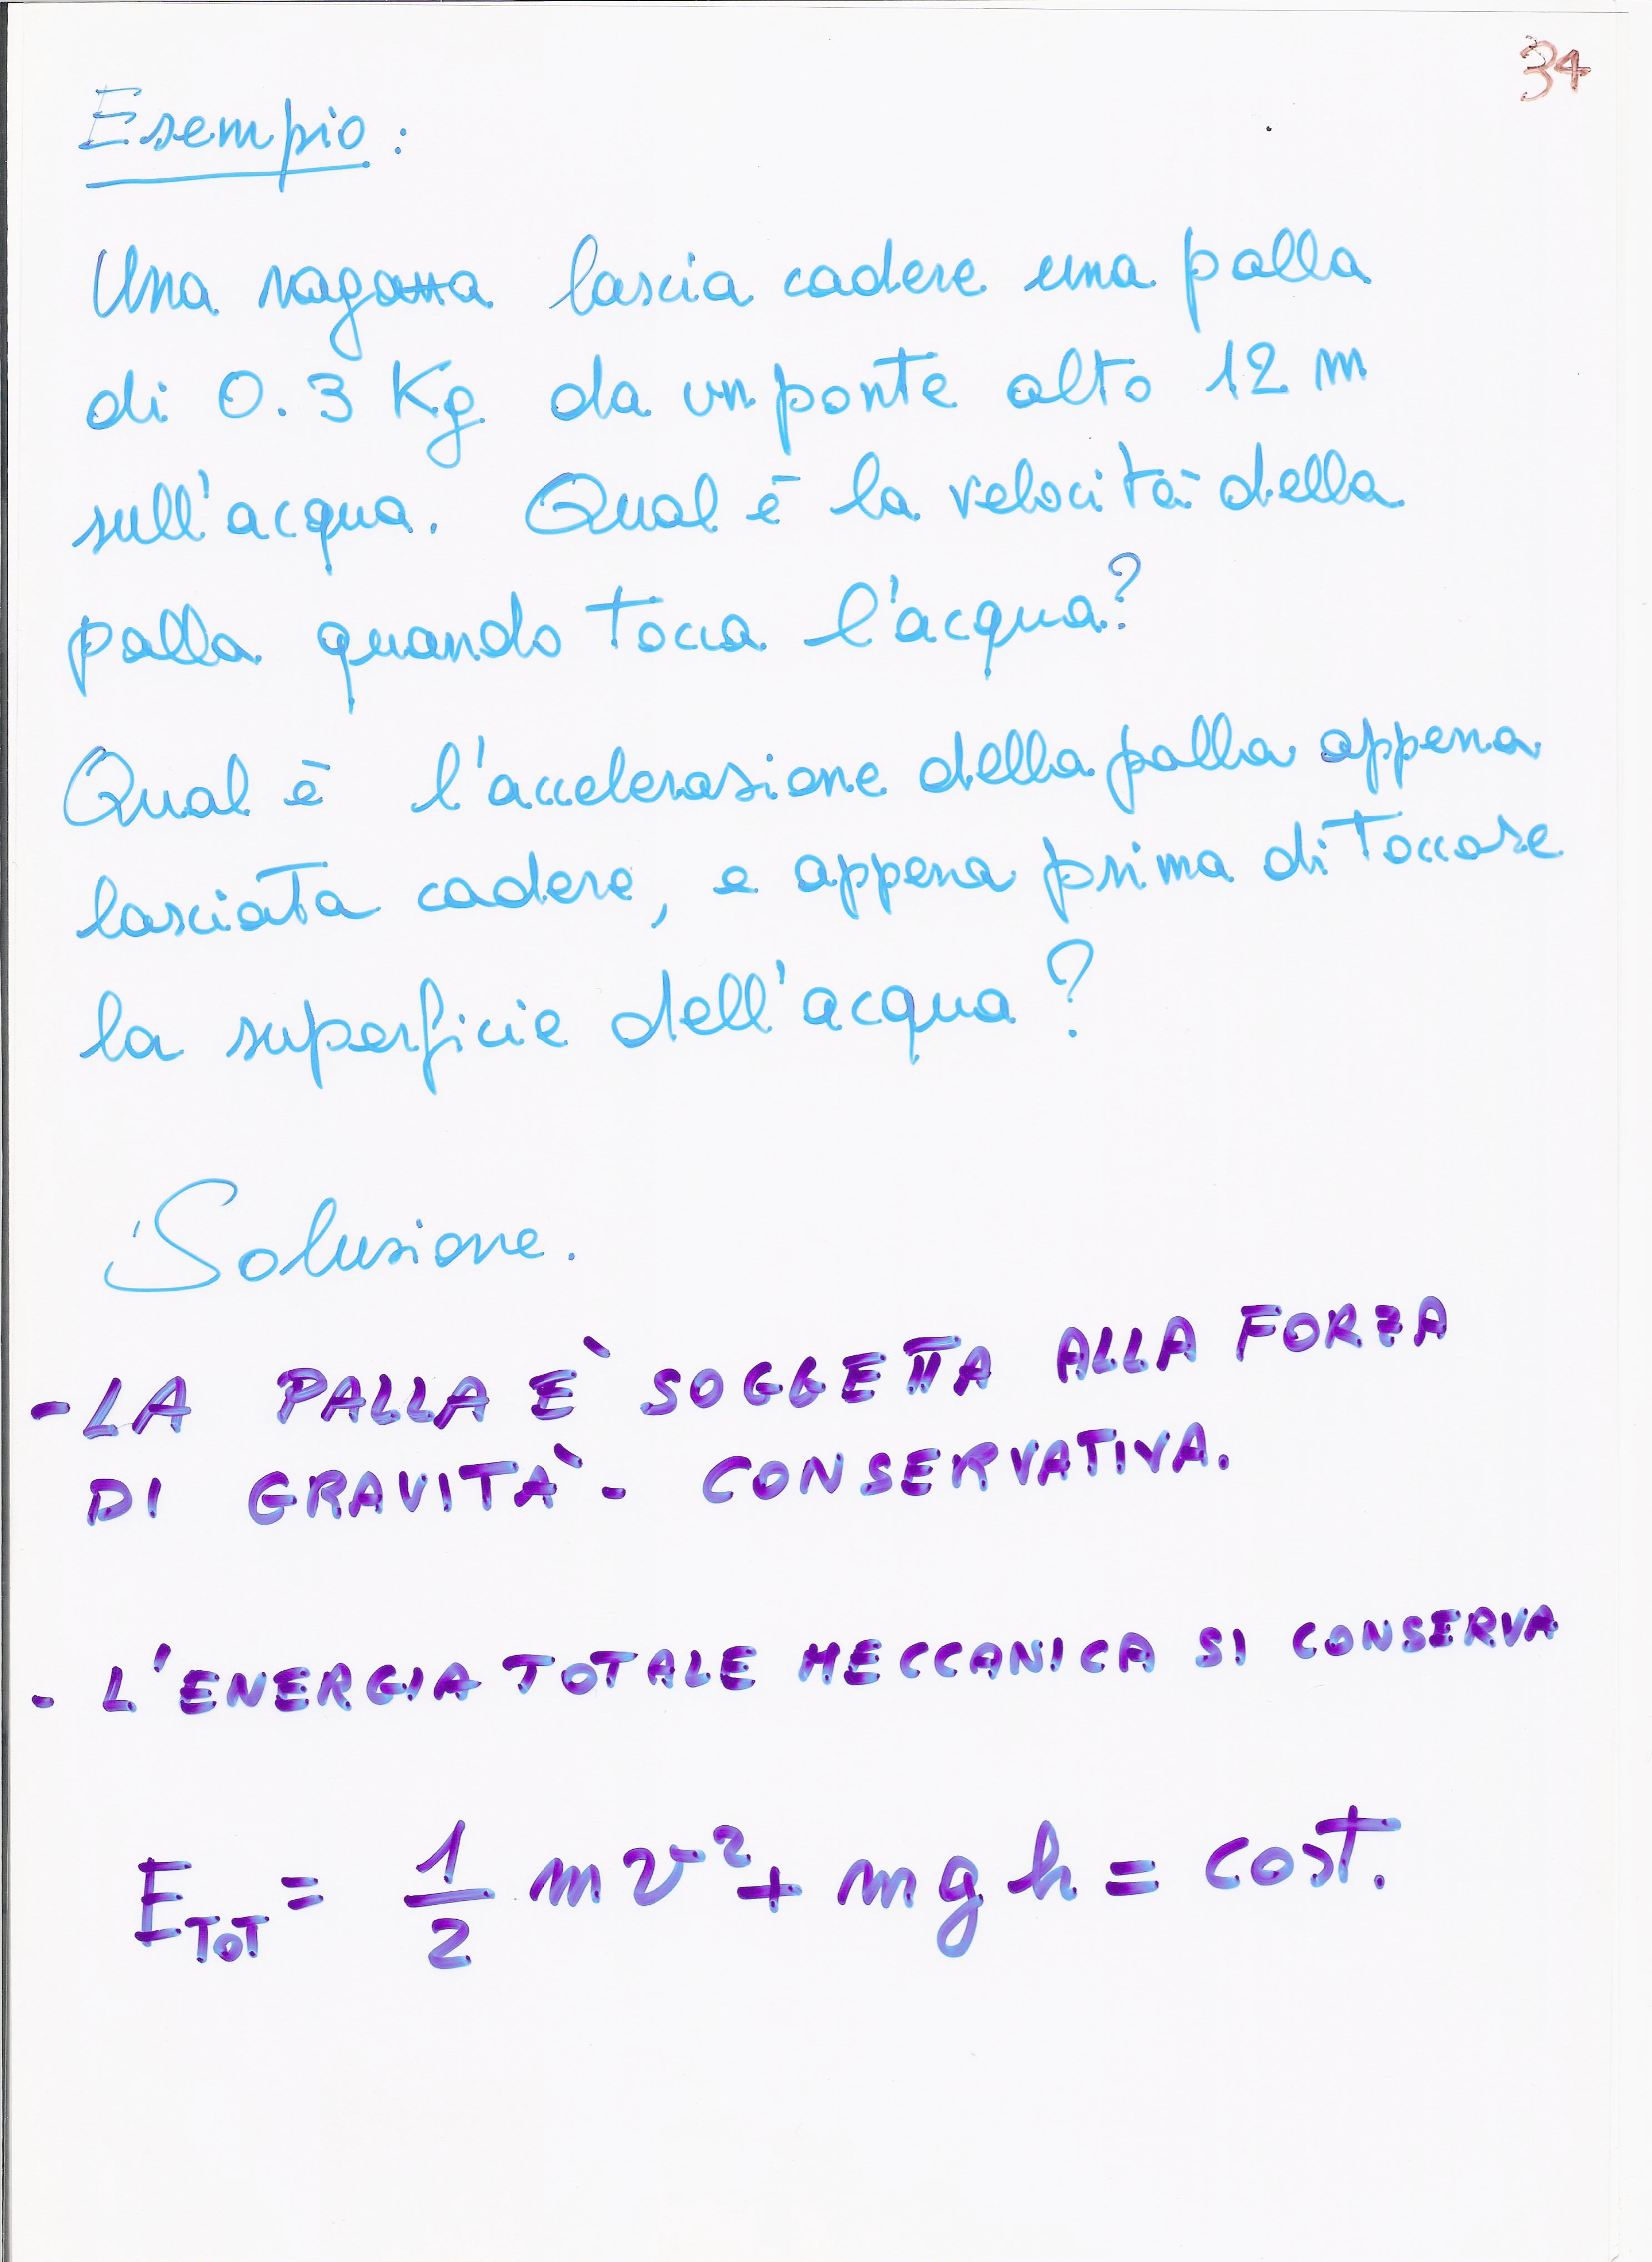 34
Esempio:
Una ragazza lascia cadere una palla
di 0.3 Kg da un ponte alto 12 m
sull'acqua. Qual è la velocità della
palla quando tocca l'acqua?
Qual è l'accelerazione della palla appena
lasciata cadere, e appena prima di toccare
la superficie dell'acqua?
Soluzione.
- LA PALLA È SOGGETTA ALLA FORZA
DI GRAVITÀ - CONSERVATIVA.
- L'ENERGIA TOTALE MECCANICA SI CONSERVA
E_TOT = 1/2 mv² + mgh = cost.